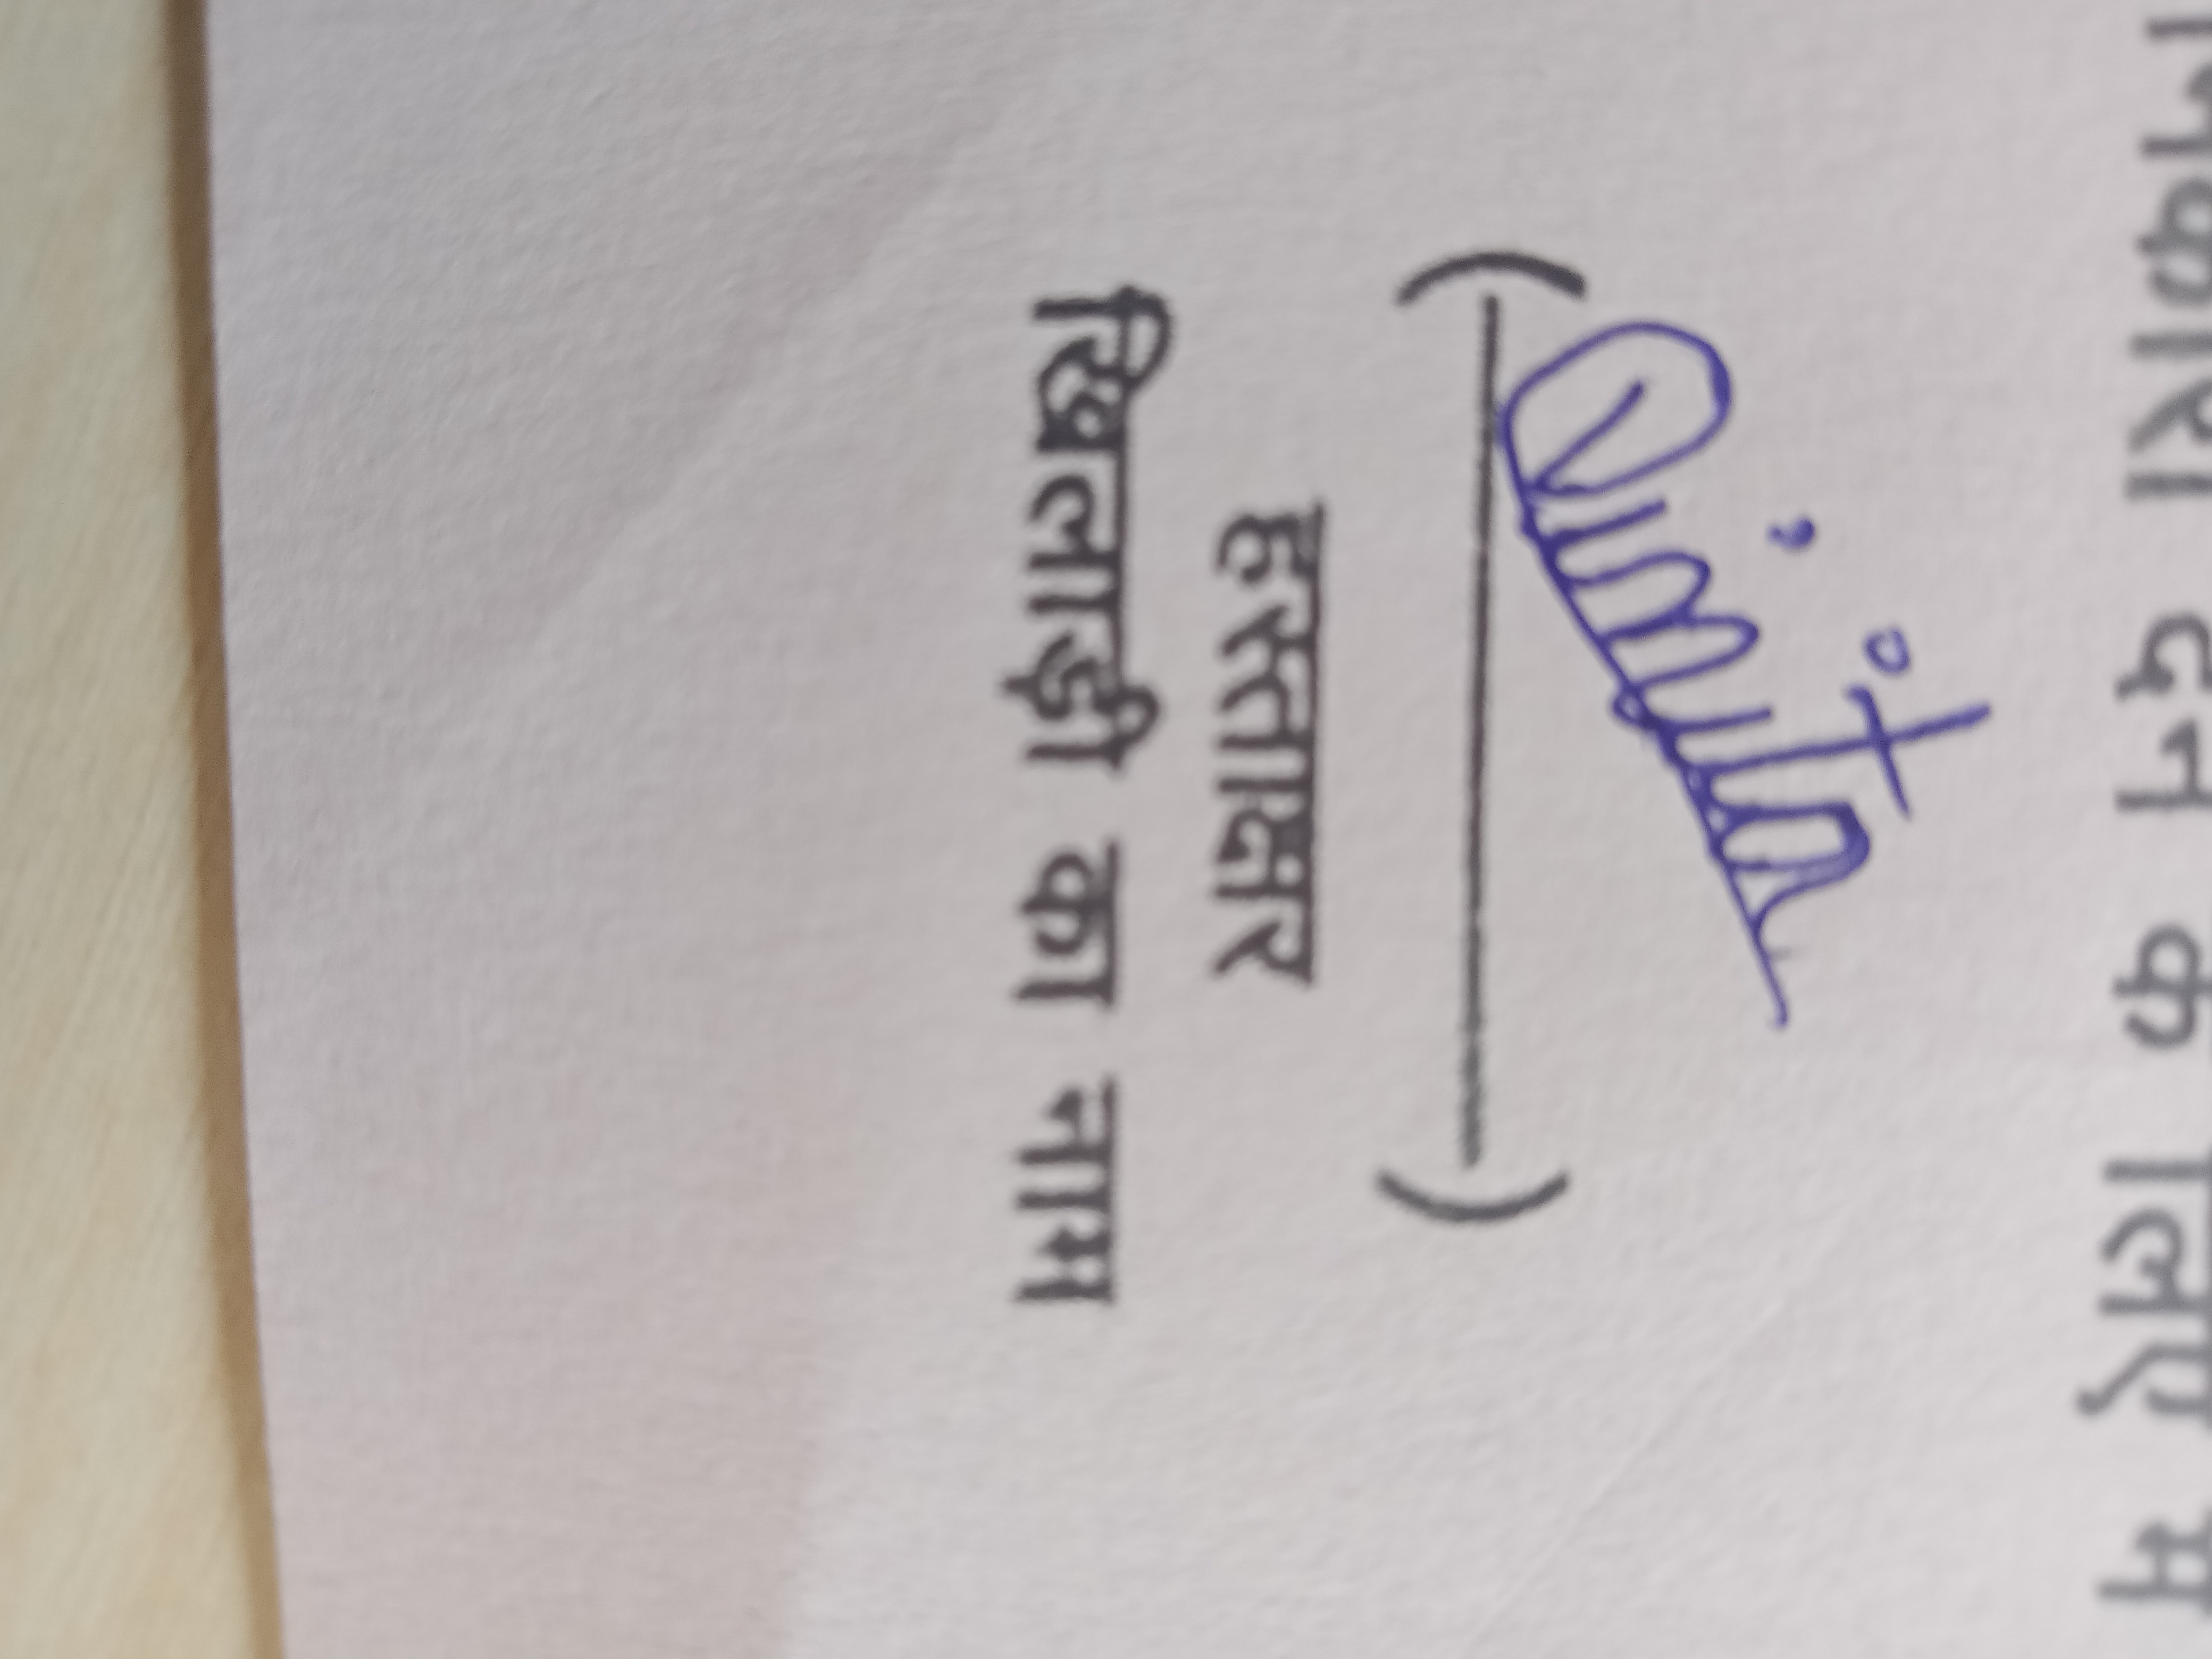 जानकारी देने के लिए म
Dimita
(                    )
हस्ताक्षर
खिलाड़ी का नाम